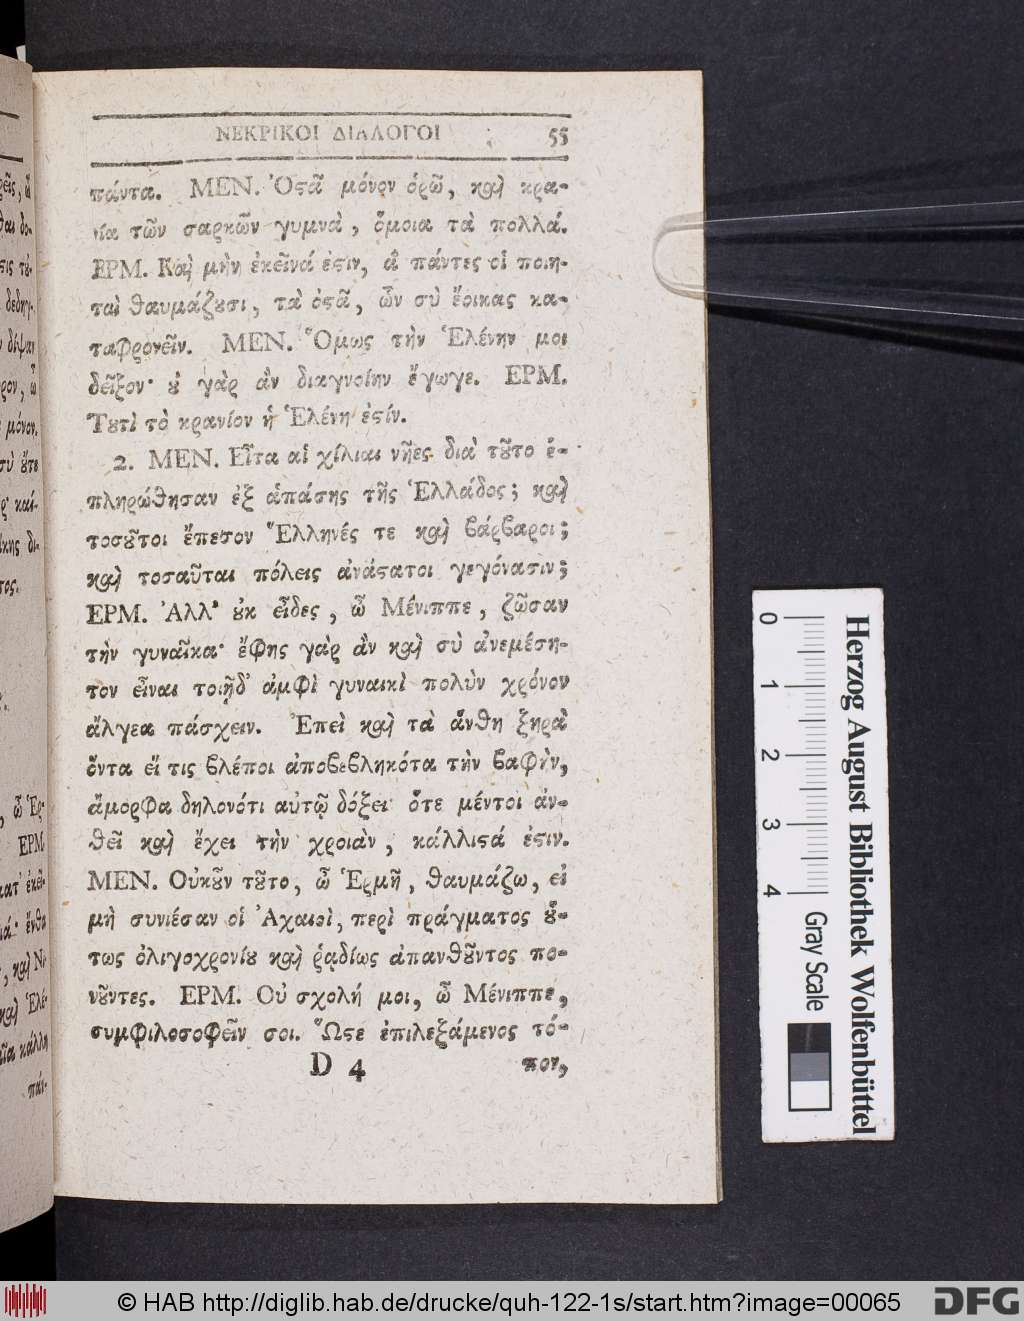 ΝΕΚΡΙΚΟΙ ΔΙΑΛΟΓΟΙ 55
πάντα. ΜΕΝ. Ὀϛᾶ μόνον ὁρῶ, καὶ κρα-
νία τῶν σαρκῶν γυμνὰ, ὅμοια τὰ πολλά.
ΕΡΜ. Καὶ μὴν ἐκεῖνά ἐϛιν, ἃ πάντες οἱ ποιη-
ταὶ θαυμάζȣσι, τὰ ὀϛᾶ, ὧν σὺ ἔοικας κα-
ταφρονεῖν. ΜΕΝ. Ὅμως τὴν Ἑλένην μοι
δεῖξον· ȣ̓ γὰρ ἂν διαγνοίην ἔγωγε. ΕΡΜ.
Τȣτὶ τὸ κρανίον ἡ Ἑλένη ἐϛίν.
2. ΜΕΝ. Εἶτα αἱ χίλιαι νῆες διὰ τȣ͂το ἐ-
πληρώθησαν ἐξ ἁπάσης τῆς Ἑλλάδος; καὶ
τοσȣ͂τοι ἔπεσον Ἕλληνές τε καὶ βάρβαροι;
καὶ τοσαῦται πόλεις ἀνάϛατοι γεγόνασιν;
ΕΡΜ. Ἀλλ' ȣ̓κ εἶδες, ὦ Μένιππε, ζῶσαν
τὴν γυναῖκα· ἔφης γὰρ ἂν καὶ σὺ ἀνεμέση-
τον εἶναι τοιῇδ' ἀμφὶ γυναικὶ πολὺν χρόνον
ἄλγεα πάσχειν. Ἐπεὶ καὶ τὰ ἄνθη ξηρὰ
ὄντα εἴ τις βλέποι ἀποβεβληκότα τὴν βαφὴν,
ἄμορφα δηλονότι αὐτῷ δόξει· ὅτε μέντοι ἀν-
θεῖ καὶ ἔχει τὴν χροιὰν, κάλλιϛά ἐϛιν.
ΜΕΝ. Οὐκȣ͂ν τȣ͂το, ὦ Ἑρμῆ, θαυμάζω, εἰ
μὴ συνιέσαν οἱ Ἀχαιοὶ, περὶ πράγματος ȣ̔́-
τως ὀλιγοχρονίȣ καὶ ῥᾳδίως ἀπανθȣ͂ντος πο-
νȣ͂ντες. ΕΡΜ. Οὐ σχολή μοι, ὦ Μένιππε,
συμφιλοσοφεῖν σοι. Ὥϛε ἐπιλεξάμενος τό-
D 4 πον,
Herzog August Bibliothek Wolfenbüttel
0 1 2 3 4 Gray Scale
© HAB http://diglib.hab.de/drucke/quh-122-1s/start.htm?image=00065
DFG